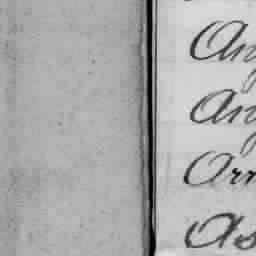 Ang
Ang
Orr
As